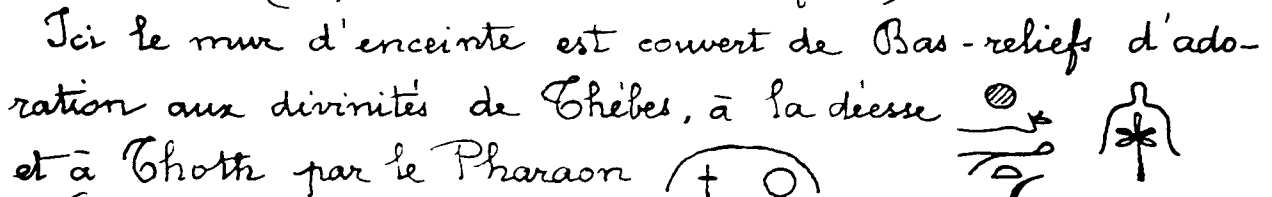 Ici le mur d'enceinte est couvert de Bas-reliefs d'ado-
ration aux divinités de Thèbes, à la déesse
et à Thoth par le Pharaon